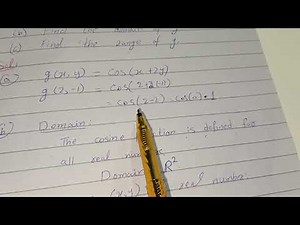 (b) Find the domain of g
(c) Find the range of g
(a) g(x,y) = cos(x+2y)
g(2,-1) = cos(2+2(-1))
= cos(2-2) = cos(0) = 1
(b) Domain:
The cosine function is defined for
all real
Domain R²
(x,y) real